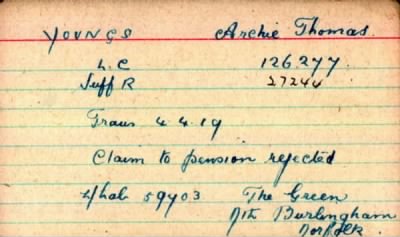 YOUNGS Archie Thomas.
L.C 126277
Suff R 27244
Trans 4.4.19
Claim to pension rejected
4/hab 59403 The Green
Nth Burlingham
Norfolk.